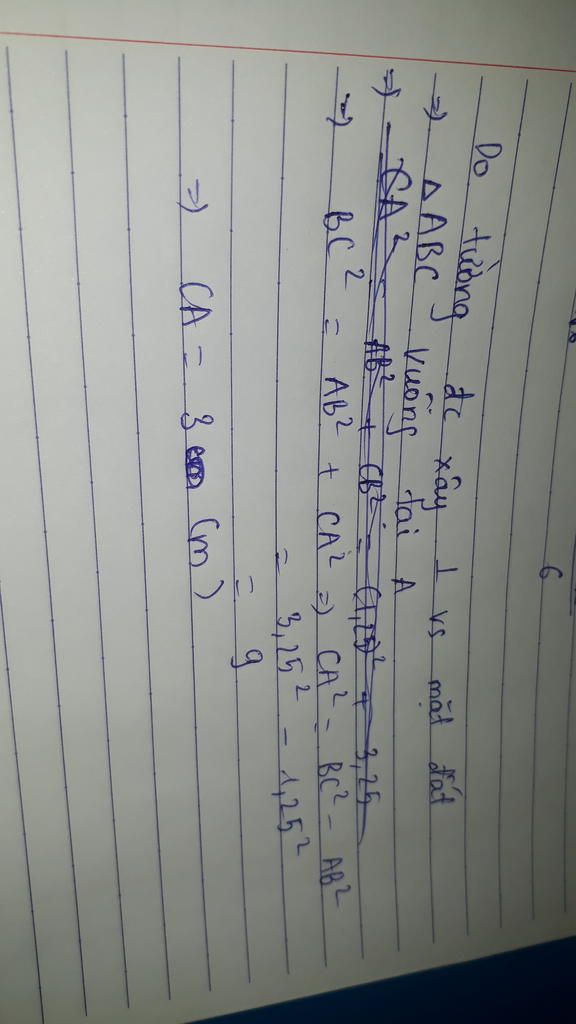 6
Do tường đc xây ⊥ vs mặt đất
=) Δ ABC vuông tại A
=) CA² = AB² + CB² = (1,25)² + 3,25
=) BC² = AB² + CA² =) CA² = BC² - AB²
= 3,25² - 1,25²
= 9
=) CA = 3 (m)